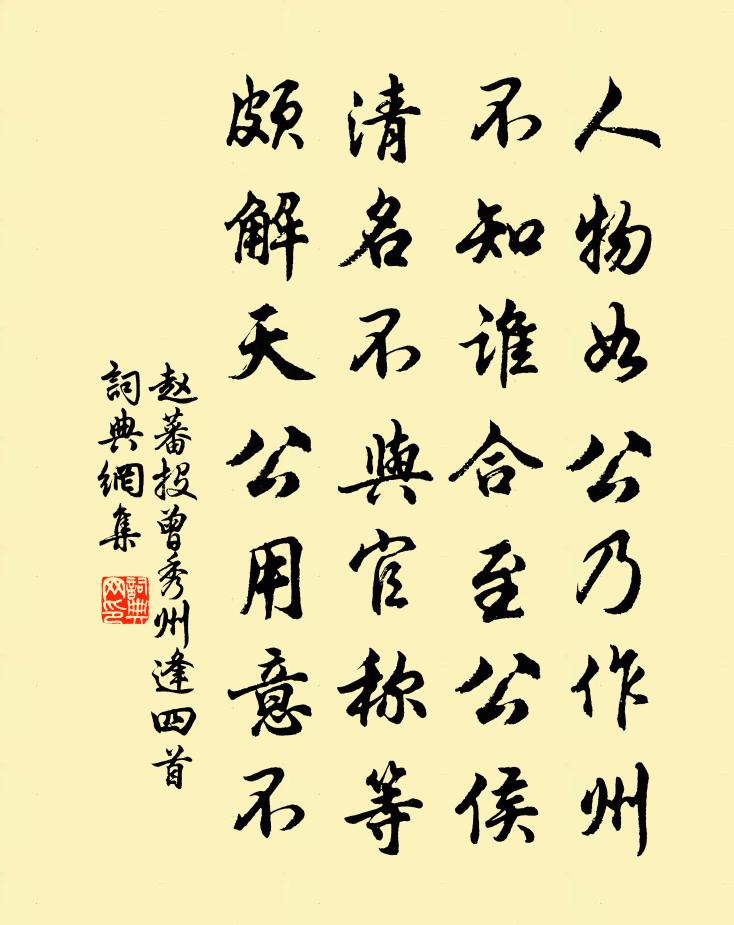 人物如公乃作州
不知谁合至公侯
清名不與官称等
颇解天公用意不
赵蕃投曾秀州逢四首
詞典網集
詞典网印